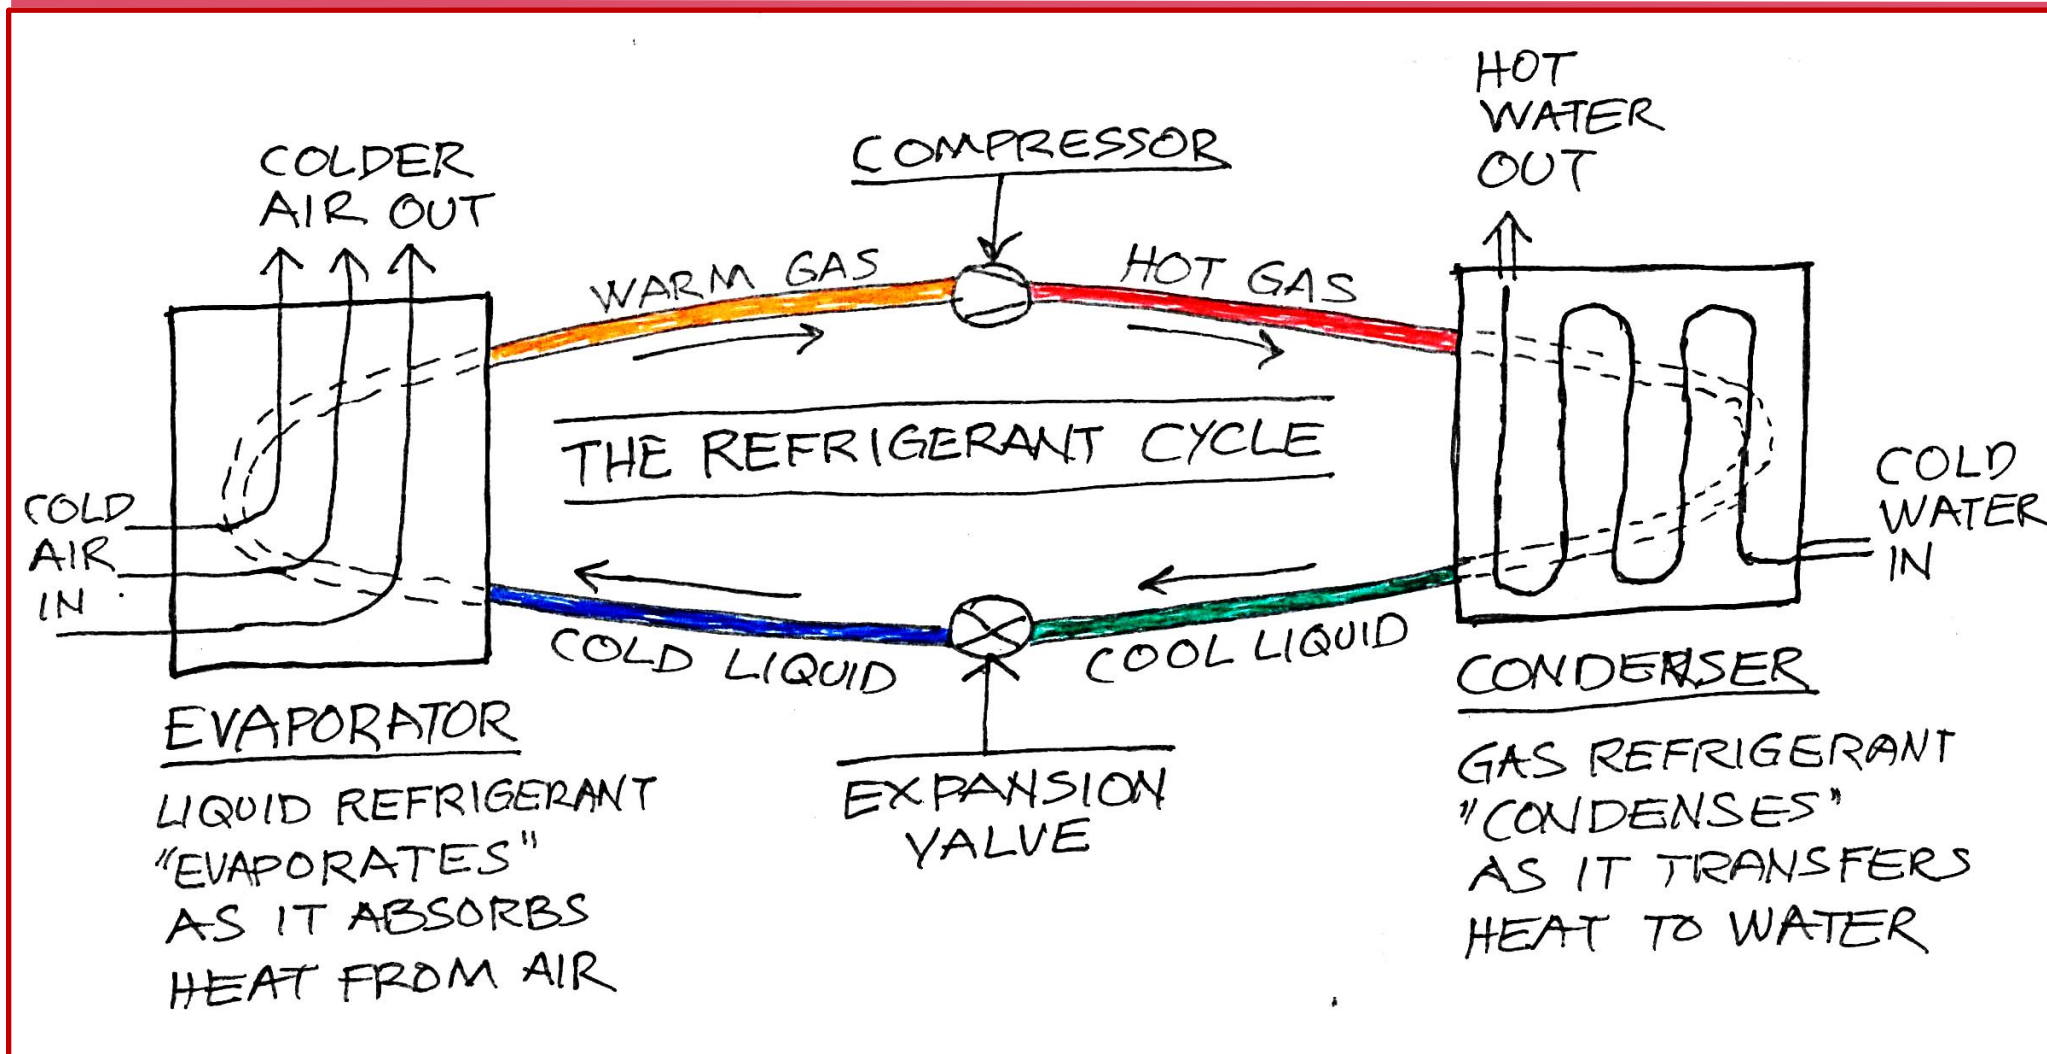 HOT
WATER
OUT
COMPRESSOR
COLDER
AIR OUT
WARM GAS
HOT GAS
THE REFRIGERANT CYCLE
COLD
AIR
IN
COLD
WATER
IN
COLD LIQUID
COOL LIQUID
EVAPORATOR
LIQUID REFRIGERANT
"EVAPORATES"
AS IT ABSORBS
HEAT FROM AIR
EXPANSION
VALVE
CONDENSER
GAS REFRIGERANT
"CONDENSES"
AS IT TRANSFERS
HEAT TO WATER